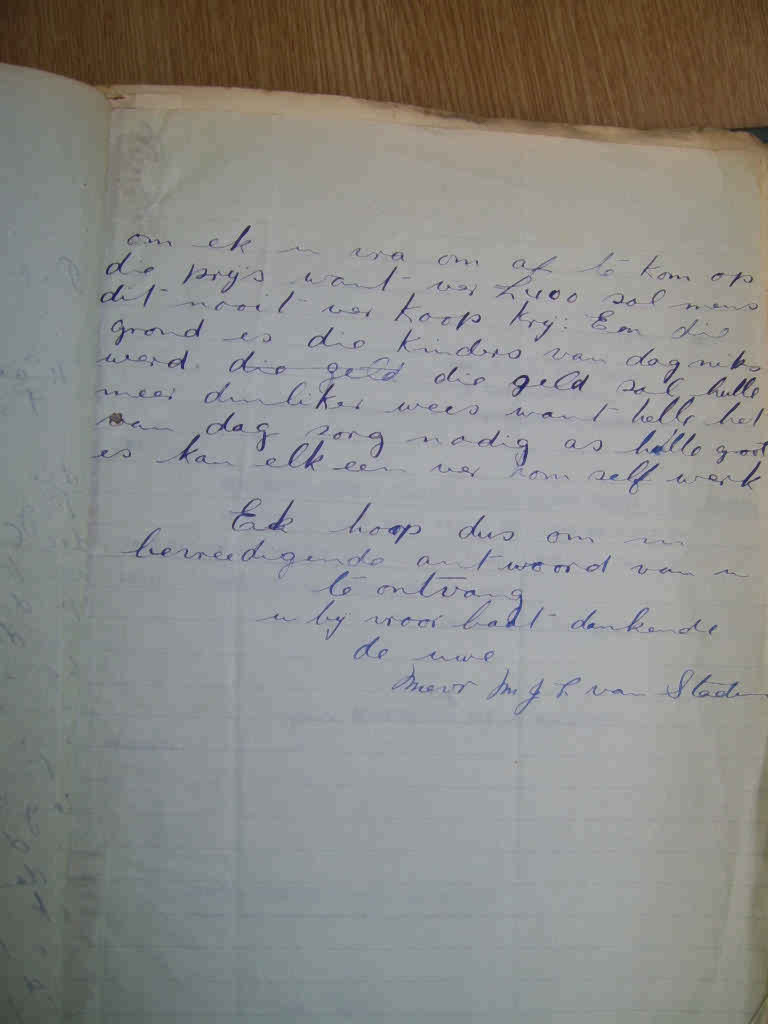 om ek u vra om af te kom op
die prys want ver £400 sal mens
dit nooit ver koop kry: Een die
grond is die kinders van dag niks
werd. die geld die geld sal hulle
meer dinliker wees want hulle het
van dag sorg nodig as hulle groot
is kan elk een ver hom self werk
Ek hoop dus om un
bevredigende antwoord van u
te ontvang
u by voor baat dankende
de uwe
Mevr M J L van Staden